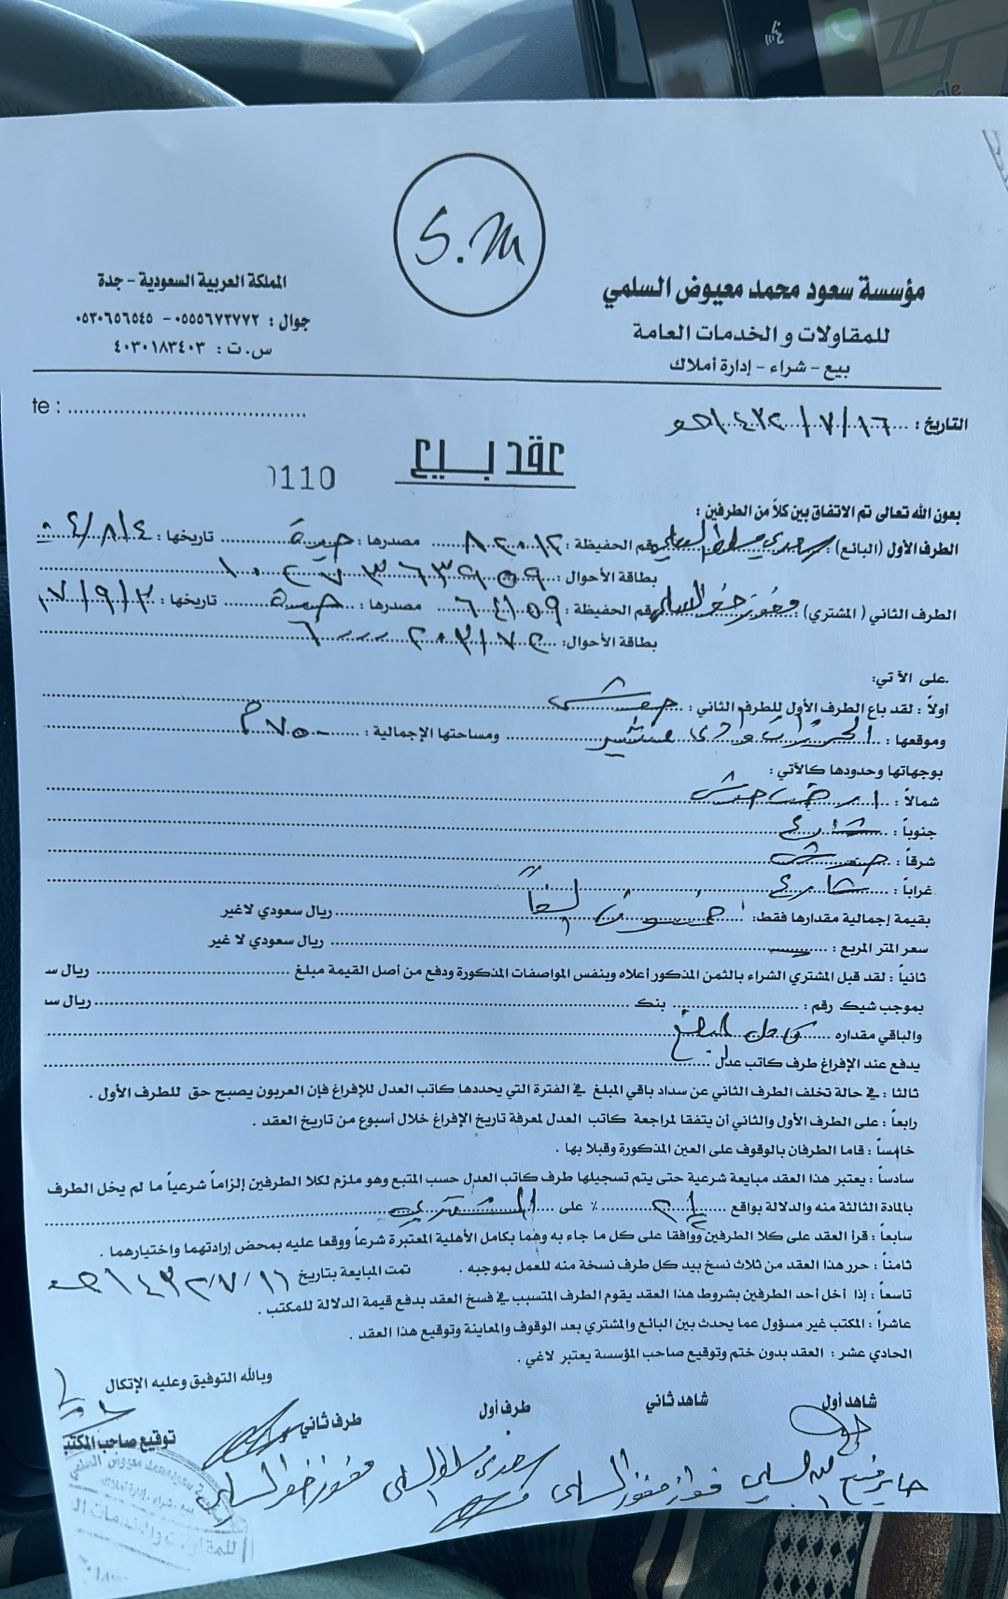 S.M
مؤسسة سعود محمد معيوض السلمي
للمقاولات و الخدمات العامة
بيع - شراء - إدارة أملاك
المملكة العربية السعودية - جدة
جوال : ٠٥٥٥٦٧٣٧٧٢ - ٠٥٣٠٦٥٦٥٤٥
س.ت : ٤٠٣٠١٨٣٤٠٣
التاريخ : ١٦ / ٧ / ١٤٣٢هـ
te :
عقد بيع
110
بعون الله تعالى تم الاتفاق بين كلاً من الطرفين :
الطرف الأول (البائع) : السلمي رقم الحفيظة : ٨٢٠١٢ مصدرها : تاريخها : ٤/٨/
بطاقة الأحوال :
الطرف الثاني ( المشتري) السلمي رقم الحفيظة : ٦٤١٥٩ مصدرها : تاريخها :
بطاقة الأحوال:
على الآتي:
أولاً : لقد باع الطرف الأول للطرف الثاني : حوش
وموقعها : ومساحتها الإجمالية : ٧٥٠م
بوجهاتها وحدودها كالآتي :
شمالاً : حوش
جنوباً : شارع
شرقاً : حوش
غراباً : شارع
بقيمة إجمالية مقدارها فقط: خمسون ألفاً ريال سعودي لاغير
سعر المتر المربع : ريال سعودي لا غير
ثانياً : لقد قبل المشتري الشراء بالثمن المذكور أعلاه وبنفس المواصفات المذكورة ودفع من أصل القيمة مبلغ ريال سـ
بموجب شيك رقم : بنك ريال سـ
والباقي مقداره كامل المبلغ
يدفع عند الإفراغ طرف كاتب عدل
ثالثا : في حالة تخلف الطرف الثاني عن سداد باقي المبلغ في الفترة التي يحددها كاتب العدل للإفراغ فإن العربون يصبح حق للطرف الأول .
رابعاً : على الطرف الأول والثاني أن يتفقا لمراجعة كاتب العدل لمعرفة تاريخ الإفراغ خلال أسبوع من تاريخ العقد .
خامساً : قاما الطرفان بالوقوف على العين المذكورة وقبلا بها .
سادساً : يعتبر هذا العقد مبايعة شرعية حتى يتم تسجيلها طرف كاتب العدل حسب المتبع وهو ملزم لكلا الطرفين إلزاماً شرعياً ما لم يخل الطرف
بالمادة الثالثة منه والدلالة بواقع ٪ على المشتري
سابعاً : قرأ العقد على كلا الطرفين ووافقا على كل ما جاء به وهما بكامل الأهلية المعتبرة شرعاً ووقعا عليه بمحض إرادتهما واختيارهما .
ثامناً : حرر هذا العقد من ثلاث نسخ بيد كل طرف نسخة منه للعمل بموجبه . تمت المبايعة بتاريخ ١٦/ ٧/ ١٤٣٢هـ
تاسعاً : إذا أخل أحد الطرفين بشروط هذا العقد يقوم الطرف المتسبب في فسخ العقد بدفع قيمة الدلالة للمكتب .
عاشراً : المكتب غير مسؤول عما يحدث بين البائع والمشتري بعد الوقوف والمعاينة وتوقيع هذا العقد .
الحادي عشر : العقد بدون ختم وتوقيع صاحب المؤسسة يعتبر لاغي .
وبالله التوفيق وعليه الإتكال
شاهد أول شاهد ثاني طرف أول طرف ثاني توقيع صاحب المكتب
السلمي السلمي السلمي السلمي